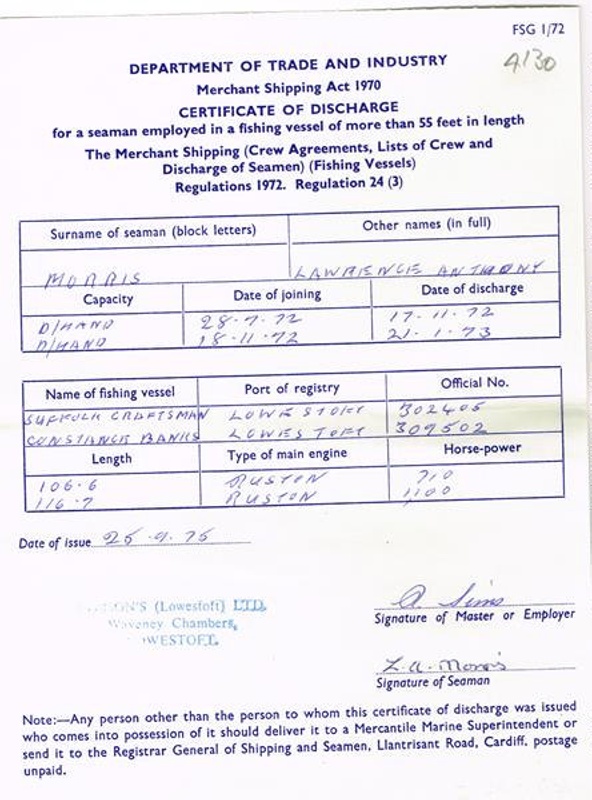 FSG 1/72
4130
DEPARTMENT OF TRADE AND INDUSTRY
Merchant Shipping Act 1970
CERTIFICATE OF DISCHARGE
for a seaman employed in a fishing vessel of more than 55 feet in length
The Merchant Shipping (Crew Agreements, Lists of Crew and
Discharge of Seamen) (Fishing Vessels)
Regulations 1972. Regulation 24 (3)
Surname of seaman (block letters) Other names (in full)
MORRIS LAWRENCE ANTHONY
Capacity Date of joining Date of discharge
D/HAND 28·7·72 17·11·72
D/HAND 18·11·72 21·1·73
Name of fishing vessel Port of registry Official No.
SUFFOLK CRAFTSMAN LOWESTOFT 302405
CONSTANCE BANKS LOWESTOFT 309502
Length Type of main engine Horse-power
106·6 RUSTON 710
116·7 RUSTON 1,100
Date of issue 25·9·75
(Lowestoft) LTD.
Waveney Chambers,
WESTOFT.
A. Sims
Signature of Master or Employer
L. A. Morris
Signature of Seaman
Note:—Any person other than the person to whom this certificate of discharge was issued
who comes into possession of it should deliver it to a Mercantile Marine Superintendent or
send it to the Registrar General of Shipping and Seamen, Llantrisant Road, Cardiff, postage
unpaid.